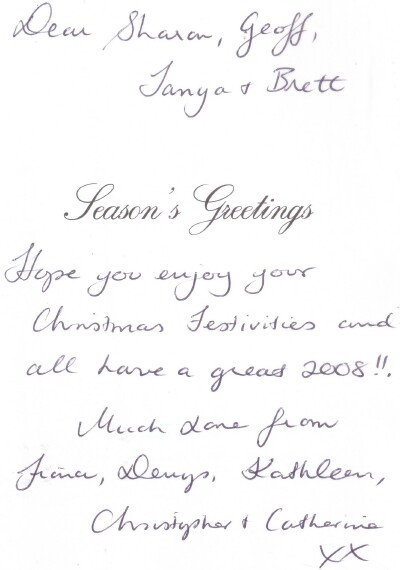 Dear Sharon, Geoff,
Tanya & Brett
Season's Greetings
Hope you enjoy your
Christmas Festivities and
all have a great 2008!!.
Much Love from
Fiona, Denys, Kathleen,
Christopher & Catherine
XX